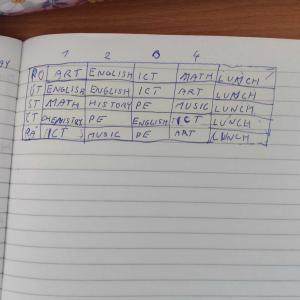 1 2 3 4
PO ART ENGLISH ICT MATH LUNCH
UT ENGLISH ENGLISH ICT ART LUNCH
ST MATH HISTORY PE MUSIC LUNCH
CT CHEMISTRY PE ENGLISH ICT LUNCH
PA ICT MUSIC PE ART LUNCH